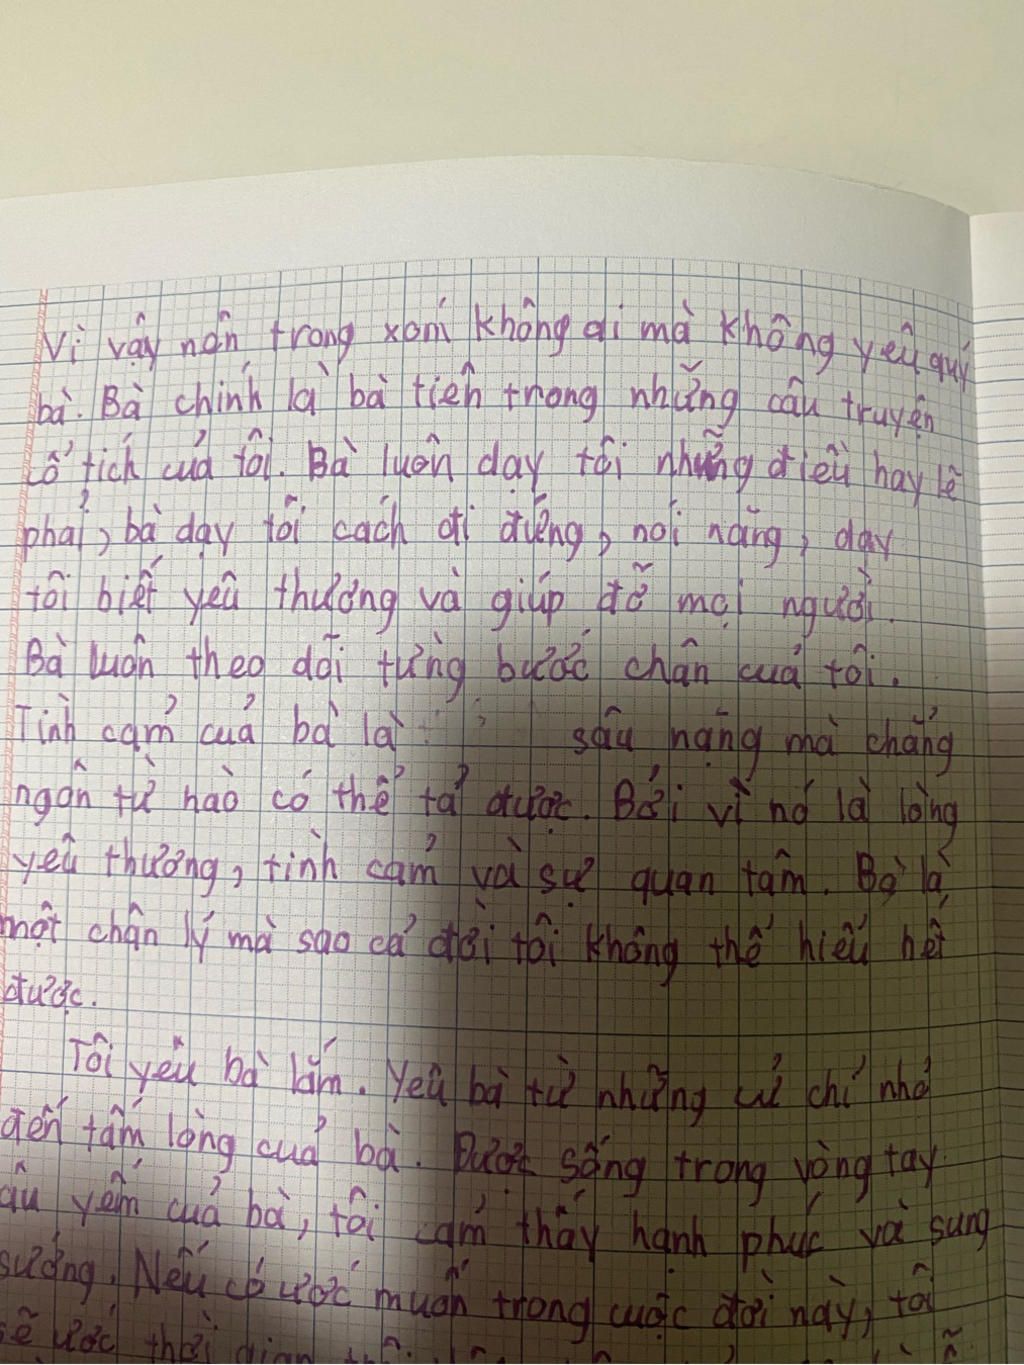 Vì vậy nên trong xóm không ai mà không yêu quý
bà. Bà chính là bà tiên trong những câu truyện
cổ tích của tôi. Bà luôn dạy tôi những điều hay lẽ
phải, bà dạy tôi cách đi đứng, nói năng, dạy
tôi biết yêu thương và giúp đỡ mọi người.
Bà luôn theo dõi từng bước chân của tôi.
Tình cảm của bà là sâu nặng mà chẳng
ngôn từ nào có thể tả được. Bởi vì nó là lòng
yêu thương, tình cảm và sự quan tâm. Bà là
một chân lý mà sao cả đời tôi không thể hiểu hết
được.
Tôi yêu bà lắm. Yêu bà từ những cử chỉ nhỏ
đến tấm lòng của bà. Được sống trong vòng tay
âu yếm của bà, tôi cảm thấy hạnh phúc và sung
sướng. Nếu có ước muốn trong cuộc đời này, tôi
sẽ ước thời gian